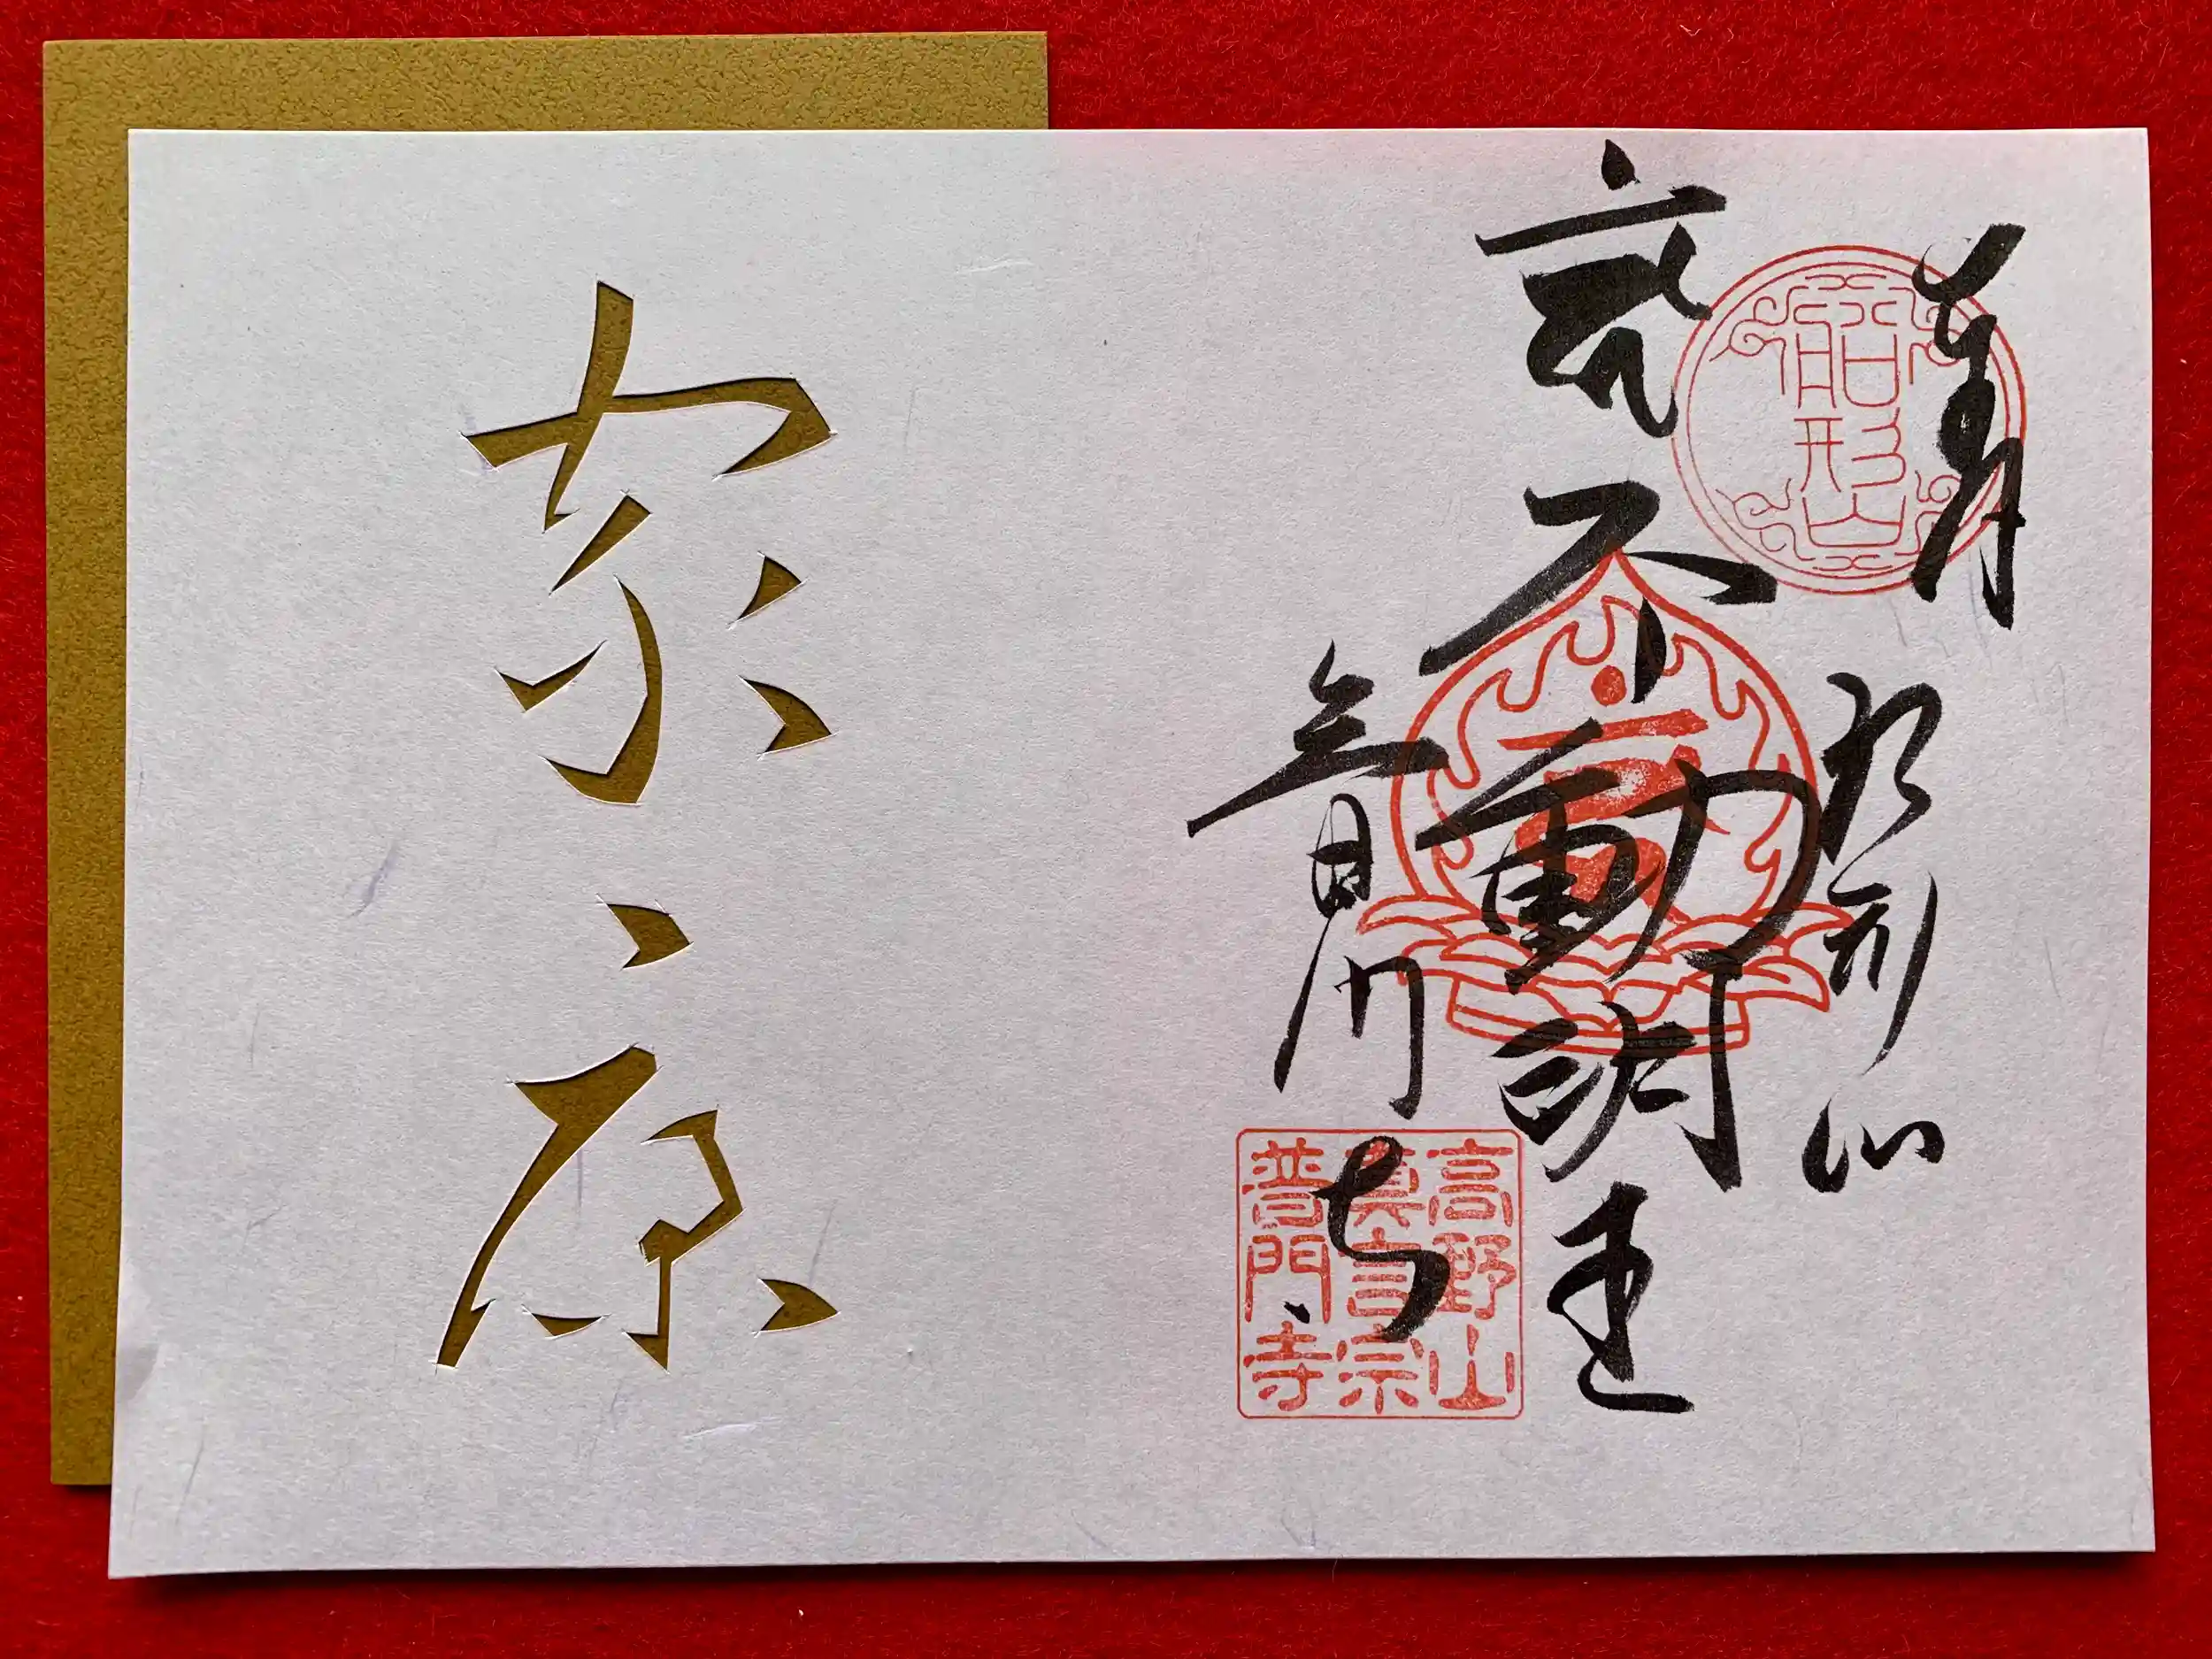 奉拝
船形山
船形山
不動明王
普門寺
高野山
真言宗
普門寺